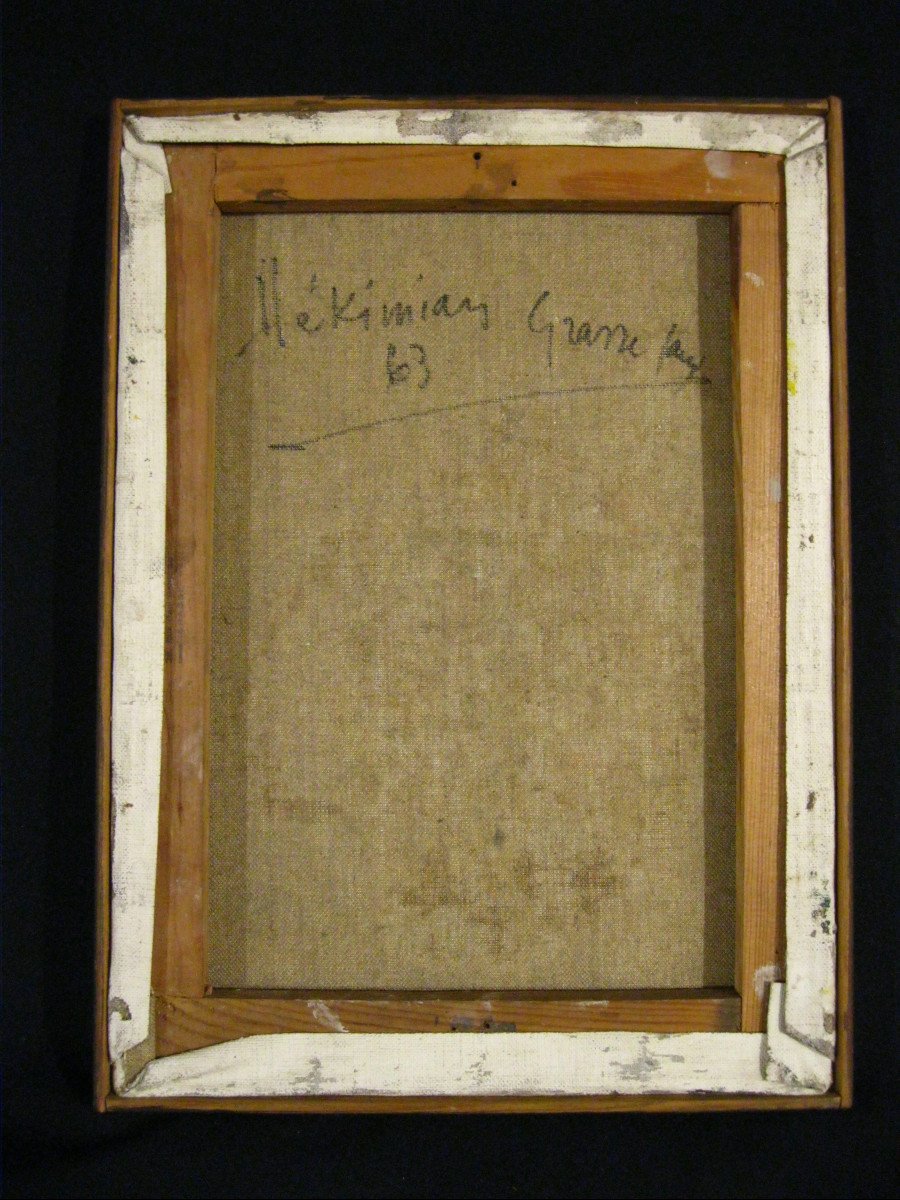 Mékimian Grasse
63